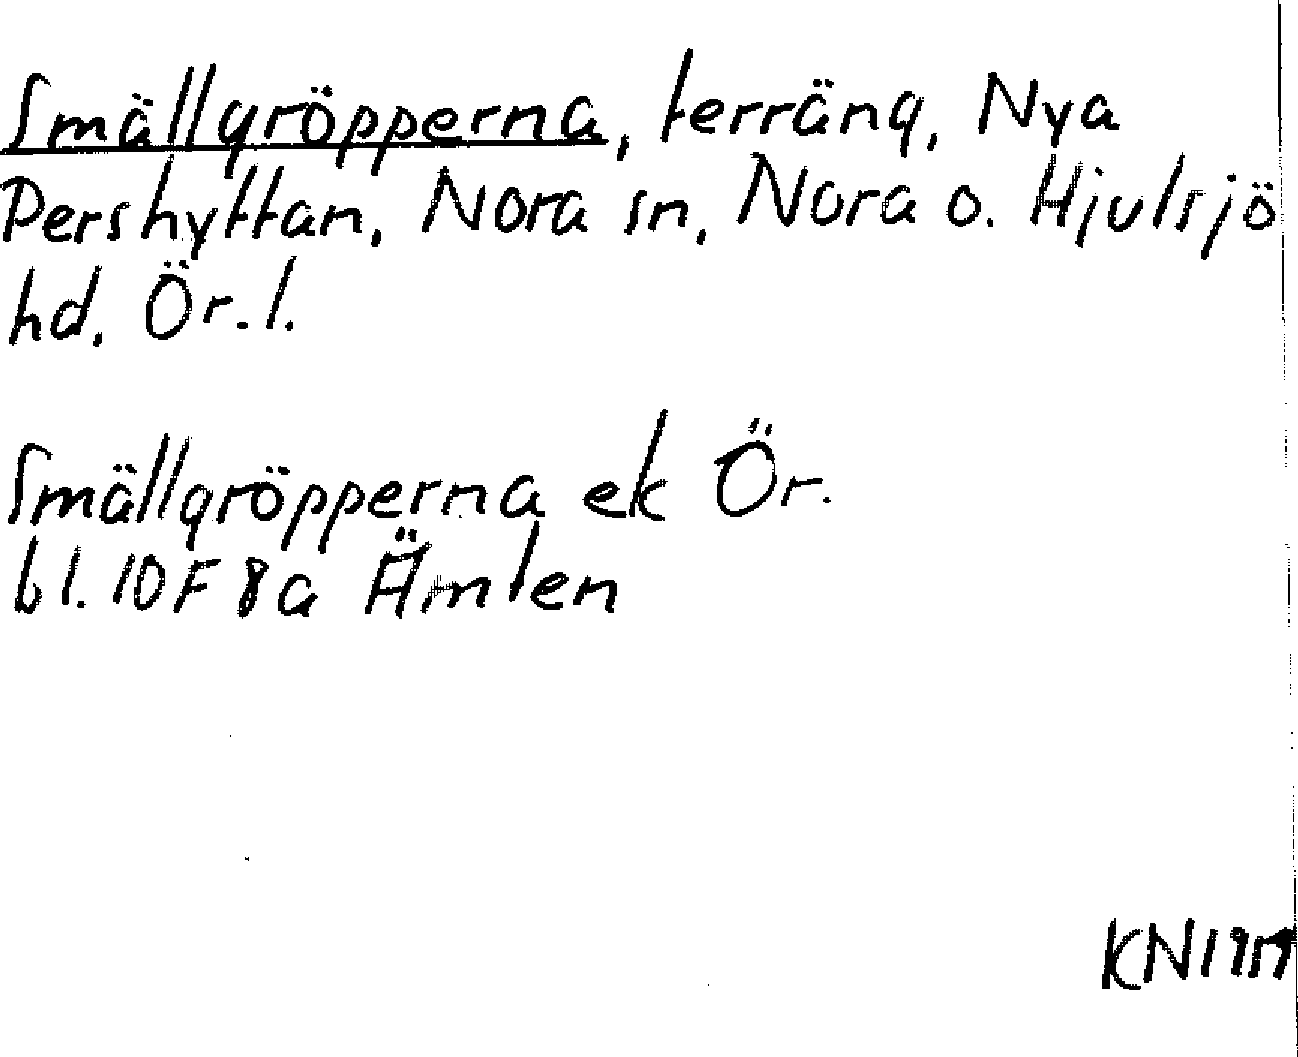 Smällgröpperna, terräng, Nya
Pershyttan, Nora sn, Nora o. Hjulsjö
hd. Ör. l.
Smällgröpperna ek Ör.
bl. 10F 8a Ämten